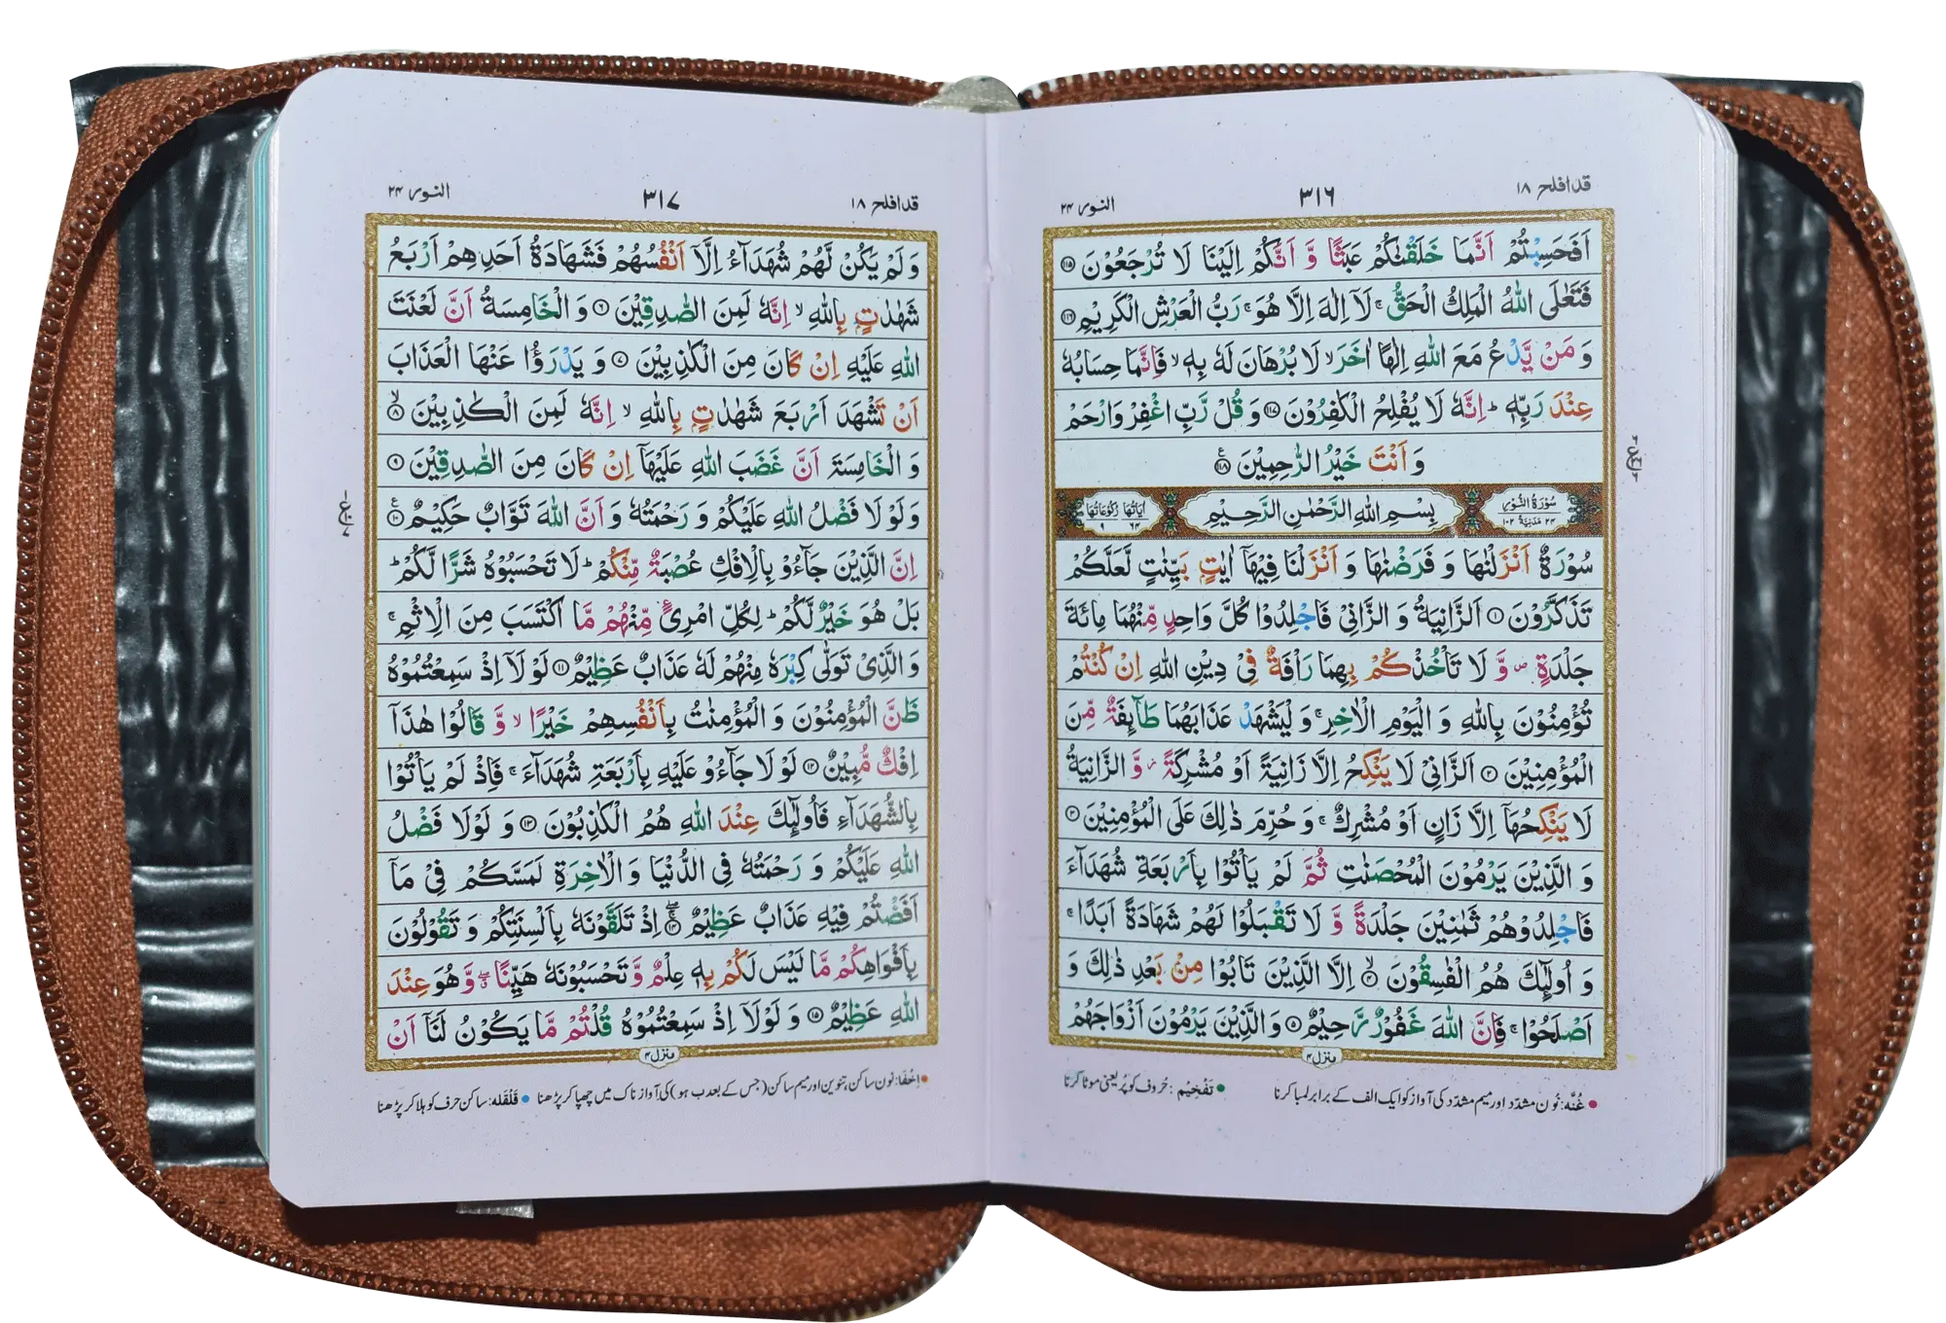 قدافلح ١٨
٣١٦
النور ٢٤
اَفَحَسِبْتُمْ اَنَّمَا خَلَقْنٰكُمْ عَبَثًا وَّ اَنَّكُمْ اِلَيْنَا لَا تُرْجَعُوْنَ ١١٥
فَتَعٰلَى اللّٰهُ الْمَلِكُ الْحَقُّ ۚ لَاۤ اِلٰهَ اِلَّا هُوَ ۚ رَبُّ الْعَرْشِ الْكَرِيْمِ ١١٦
وَ مَنْ يَّدْعُ مَعَ اللّٰهِ اِلٰهًا اٰخَرَ ۙ لَا بُرْهَانَ لَهٗ بِهٖ ۙ فَاِنَّمَا حِسَابُهٗ
عِنْدَ رَبِّهٖ ؕ اِنَّهٗ لَا يُفْلِحُ الْكٰفِرُوْنَ ١١٧ وَ قُلْ رَّبِّ اغْفِرْ وَارْحَمْ
وَ اَنْتَ خَيْرُ الرّٰحِمِيْنَ ١١٨
سُوْرَةُ النُّوْرِ
٢٤ مَدَنِيَّةٌ ١٠٢
بِسْمِ اللّٰهِ الرَّحْمٰنِ الرَّحِيْمِ
اٰيَاتُهَا ٦٤ رُكُوْعَاتُهَا ٩
سُوْرَةٌ اَنْزَلْنٰهَا وَ فَرَضْنٰهَا وَ اَنْزَلْنَا فِيْهَاۤ اٰيٰتٍۭ بَيِّنٰتٍ لَّعَلَّكُمْ
تَذَكَّرُوْنَ ١ اَلزَّانِيَةُ وَ الزَّانِيْ فَاجْلِدُوْا كُلَّ وَاحِدٍ مِّنْهُمَا مِائَةَ
جَلْدَةٍ ۪ وَّ لَا تَاْخُذْكُمْ بِهِمَا رَاْفَةٌ فِيْ دِيْنِ اللّٰهِ اِنْ كُنْتُمْ
تُؤْمِنُوْنَ بِاللّٰهِ وَ الْيَوْمِ الْاٰخِرِ ۚ وَ لْيَشْهَدْ عَذَابَهُمَا طَآىِٕفَةٌ مِّنَ
الْمُؤْمِنِيْنَ ٢ اَلزَّانِيْ لَا يَنْكِحُ اِلَّا زَانِيَةً اَوْ مُشْرِكَةً ؗ وَّ الزَّانِيَةُ
لَا يَنْكِحُهَاۤ اِلَّا زَانٍ اَوْ مُشْرِكٌ ۚ وَ حُرِّمَ ذٰلِكَ عَلَى الْمُؤْمِنِيْنَ ٣
وَ الَّذِيْنَ يَرْمُوْنَ الْمُحْصَنٰتِ ثُمَّ لَمْ يَاْتُوْا بِاَرْبَعَةِ شُهَدَآءَ
فَاجْلِدُوْهُمْ ثَمٰنِيْنَ جَلْدَةً وَّ لَا تَقْبَلُوْا لَهُمْ شَهَادَةً اَبَدًا ۚ
وَ اُولٰٓىِٕكَ هُمُ الْفٰسِقُوْنَ ٤ اِلَّا الَّذِيْنَ تَابُوْا مِنْۢ بَعْدِ ذٰلِكَ وَ
اَصْلَحُوْا ۚ فَاِنَّ اللّٰهَ غَفُوْرٌ رَّحِيْمٌ ٥ وَ الَّذِيْنَ يَرْمُوْنَ اَزْوَاجَهُمْ
منزل٤
● غُنَّه: نُون مشدّد اور میم مشدّد کی آواز کو ایک الف کے برابر لمبا کرنا ● تَفْخِیْم: حُروف کو پُر یعنی موٹا کرنا
قدافلح ١٨
٣١٧
النور ٢٤
وَ لَمْ يَكُنْ لَّهُمْ شُهَدَآءُ اِلَّاۤ اَنْفُسُهُمْ فَشَهَادَةُ اَحَدِهِمْ اَرْبَعُ
شَهٰدٰتٍۭ بِاللّٰهِ ۙ اِنَّهٗ لَمِنَ الصّٰدِقِيْنَ ٦ وَ الْخَامِسَةُ اَنَّ لَعْنَتَ
اللّٰهِ عَلَيْهِ اِنْ كَانَ مِنَ الْكٰذِبِيْنَ ٧ وَ يَدْرَؤُا عَنْهَا الْعَذَابَ
اَنْ تَشْهَدَ اَرْبَعَ شَهٰدٰتٍۭ بِاللّٰهِ ۙ اِنَّهٗ لَمِنَ الْكٰذِبِيْنَ ٨
وَ الْخَامِسَةَ اَنَّ غَضَبَ اللّٰهِ عَلَيْهَاۤ اِنْ كَانَ مِنَ الصّٰدِقِيْنَ ٩
وَ لَوْ لَا فَضْلُ اللّٰهِ عَلَيْكُمْ وَ رَحْمَتُهٗ وَ اَنَّ اللّٰهَ تَوَّابٌ حَكِيْمٌ ١٠
اِنَّ الَّذِيْنَ جَآءُوْ بِالْاِفْكِ عُصْبَةٌ مِّنْكُمْ ؕ لَا تَحْسَبُوْهُ شَرًّا لَّكُمْ ؕ
بَلْ هُوَ خَيْرٌ لَّكُمْ ؕ لِكُلِّ امْرِئٍ مِّنْهُمْ مَّا اكْتَسَبَ مِنَ الْاِثْمِ ۚ
وَ الَّذِيْ تَوَلّٰى كِبْرَهٗ مِنْهُمْ لَهٗ عَذَابٌ عَظِيْمٌ ١١ لَوْ لَاۤ اِذْ سَمِعْتُمُوْهُ
ظَنَّ الْمُؤْمِنُوْنَ وَ الْمُؤْمِنٰتُ بِاَنْفُسِهِمْ خَيْرًا ۙ وَّ قَالُوْا هٰذَاۤ
اِفْكٌ مُّبِيْنٌ ١٢ لَوْ لَا جَآءُوْ عَلَيْهِ بِاَرْبَعَةِ شُهَدَآءَ ۚ فَاِذْ لَمْ يَاْتُوْا
بِالشُّهَدَآءِ فَاُولٰٓىِٕكَ عِنْدَ اللّٰهِ هُمُ الْكٰذِبُوْنَ ١٣ وَ لَوْلَا فَضْلُ
اللّٰهِ عَلَيْكُمْ وَ رَحْمَتُهٗ فِي الدُّنْيَا وَ الْاٰخِرَةِ لَمَسَّكُمْ فِيْ مَاۤ
اَفَضْتُمْ فِيْهِ عَذَابٌ عَظِيْمٌ ١٤ اِذْ تَلَقَّوْنَهٗ بِاَلْسِنَتِكُمْ وَ تَقُوْلُوْنَ
بِاَفْوَاهِكُمْ مَّا لَيْسَ لَكُمْ بِهٖ عِلْمٌ وَّ تَحْسَبُوْنَهٗ هَيِّنًا ۖ وَّ هُوَ عِنْدَ
اللّٰهِ عَظِيْمٌ ١٥ وَ لَوْلَاۤ اِذْ سَمِعْتُمُوْهُ قُلْتُمْ مَّا يَكُوْنُ لَنَاۤ اَنْ
منزل٤
● اِخْفَا: نون ساکن، تنوین اور میم ساکن (جس کے بعد ب ہو) کی آواز ناک میں چھپا کر پڑھنا ● قَلْقَلَه: ساکن حرف کو ہلا کر پڑھنا